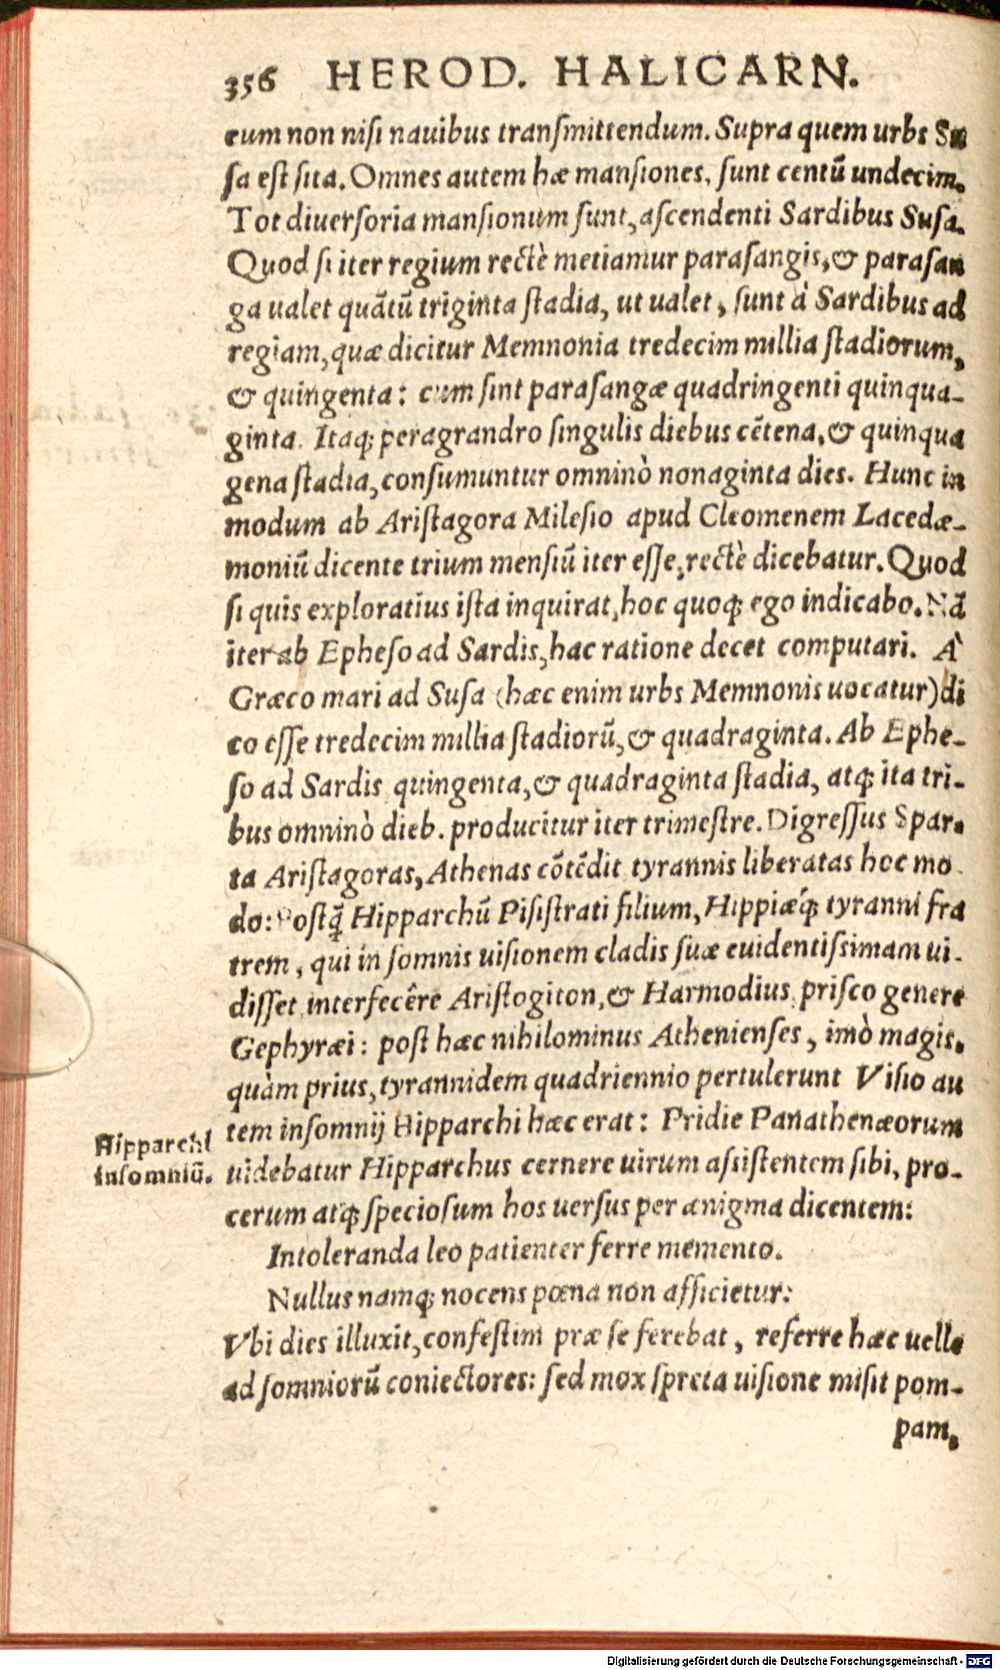 356 HEROD. HALICARN.
eum non nisi nauibus transmittendum. Supra quem urbs Su
sa est sita. Omnes autem hæ mansiones, sunt centū undecim.
Tot diuersoria mansionum sunt, ascendenti Sardibus Susa.
Quod si iter regium rectè metiamur parasangis, & parasan
ga ualet quātū triginta stadia, ut ualet, sunt à Sardibus ad
regiam, quæ dicitur Memnonia tredecim millia stadiorum,
& quingenta: cum sint parasangæ quadringenti quinqua-
ginta. Itaq; peragrandro singulis diebus cētena, & quinqua
gena stadia, consumuntur omninò nonaginta dies. Hunc in
modum ab Aristagora Milesio apud Cleomenem Lacedæ-
moniū dicente trium mensiū iter esse, rectè dicebatur. Quod
si quis exploratius ista inquirat, hoc quoq; ego indicabo. Nā
iter ab Epheso ad Sardis, hac ratione decet computari. À
Græco mari ad Susa (hæc enim urbs Memnonis uocatur) di
co esse tredecim millia stadiorū, & quadraginta. Ab Ephe-
so ad Sardis quingenta, & quadraginta stadia, atq; ita tri-
bus omninò dieb. producitur iter trimestre. Digressus Spar-
ta Aristagoras, Athenas cōtēdit tyrannis liberatas hoc mo
do: Postq̃ Hipparchū Pisistrati filium, Hippiæq́; tyranni fra
trem, qui in somnis uisionem cladis suæ euidentissimam ui-
disset interfecêre Aristogiton, & Harmodius prisco genere
Gephyræi: post hæc nihilominus Athenienses, imò magis,
quàm prius, tyrannidem quadriennio pertulerunt Visio au
tem insomnij Hipparchi hæc erat: Pridie Panathenæorum
Hipparchi
insomniū.
uidebatur Hipparchus cernere uirum assistentem sibi, pro-
cerum atq; speciosum hos uersus per ænigma dicentem:
Intoleranda leo patienter ferre memento.
Nullus namq; nocens pœna non afficietur:
Vbi dies illuxit, confestim præ se ferebat, referre hæc uelle
ad somniorū coniectores: sed mox spreta uisione misit pom-
pam,
Digitalisierung gefördert durch die Deutsche Forschungsgemeinschaft - DFG